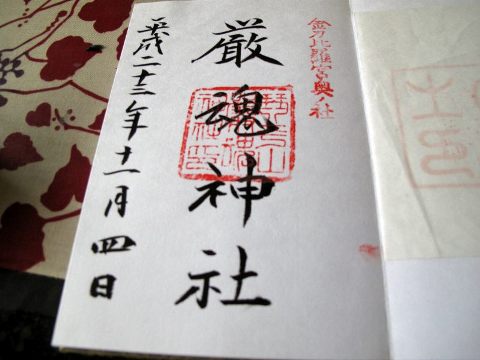 金刀比羅宮奥ノ社
厳魂神社
平成二十三年十一月四日